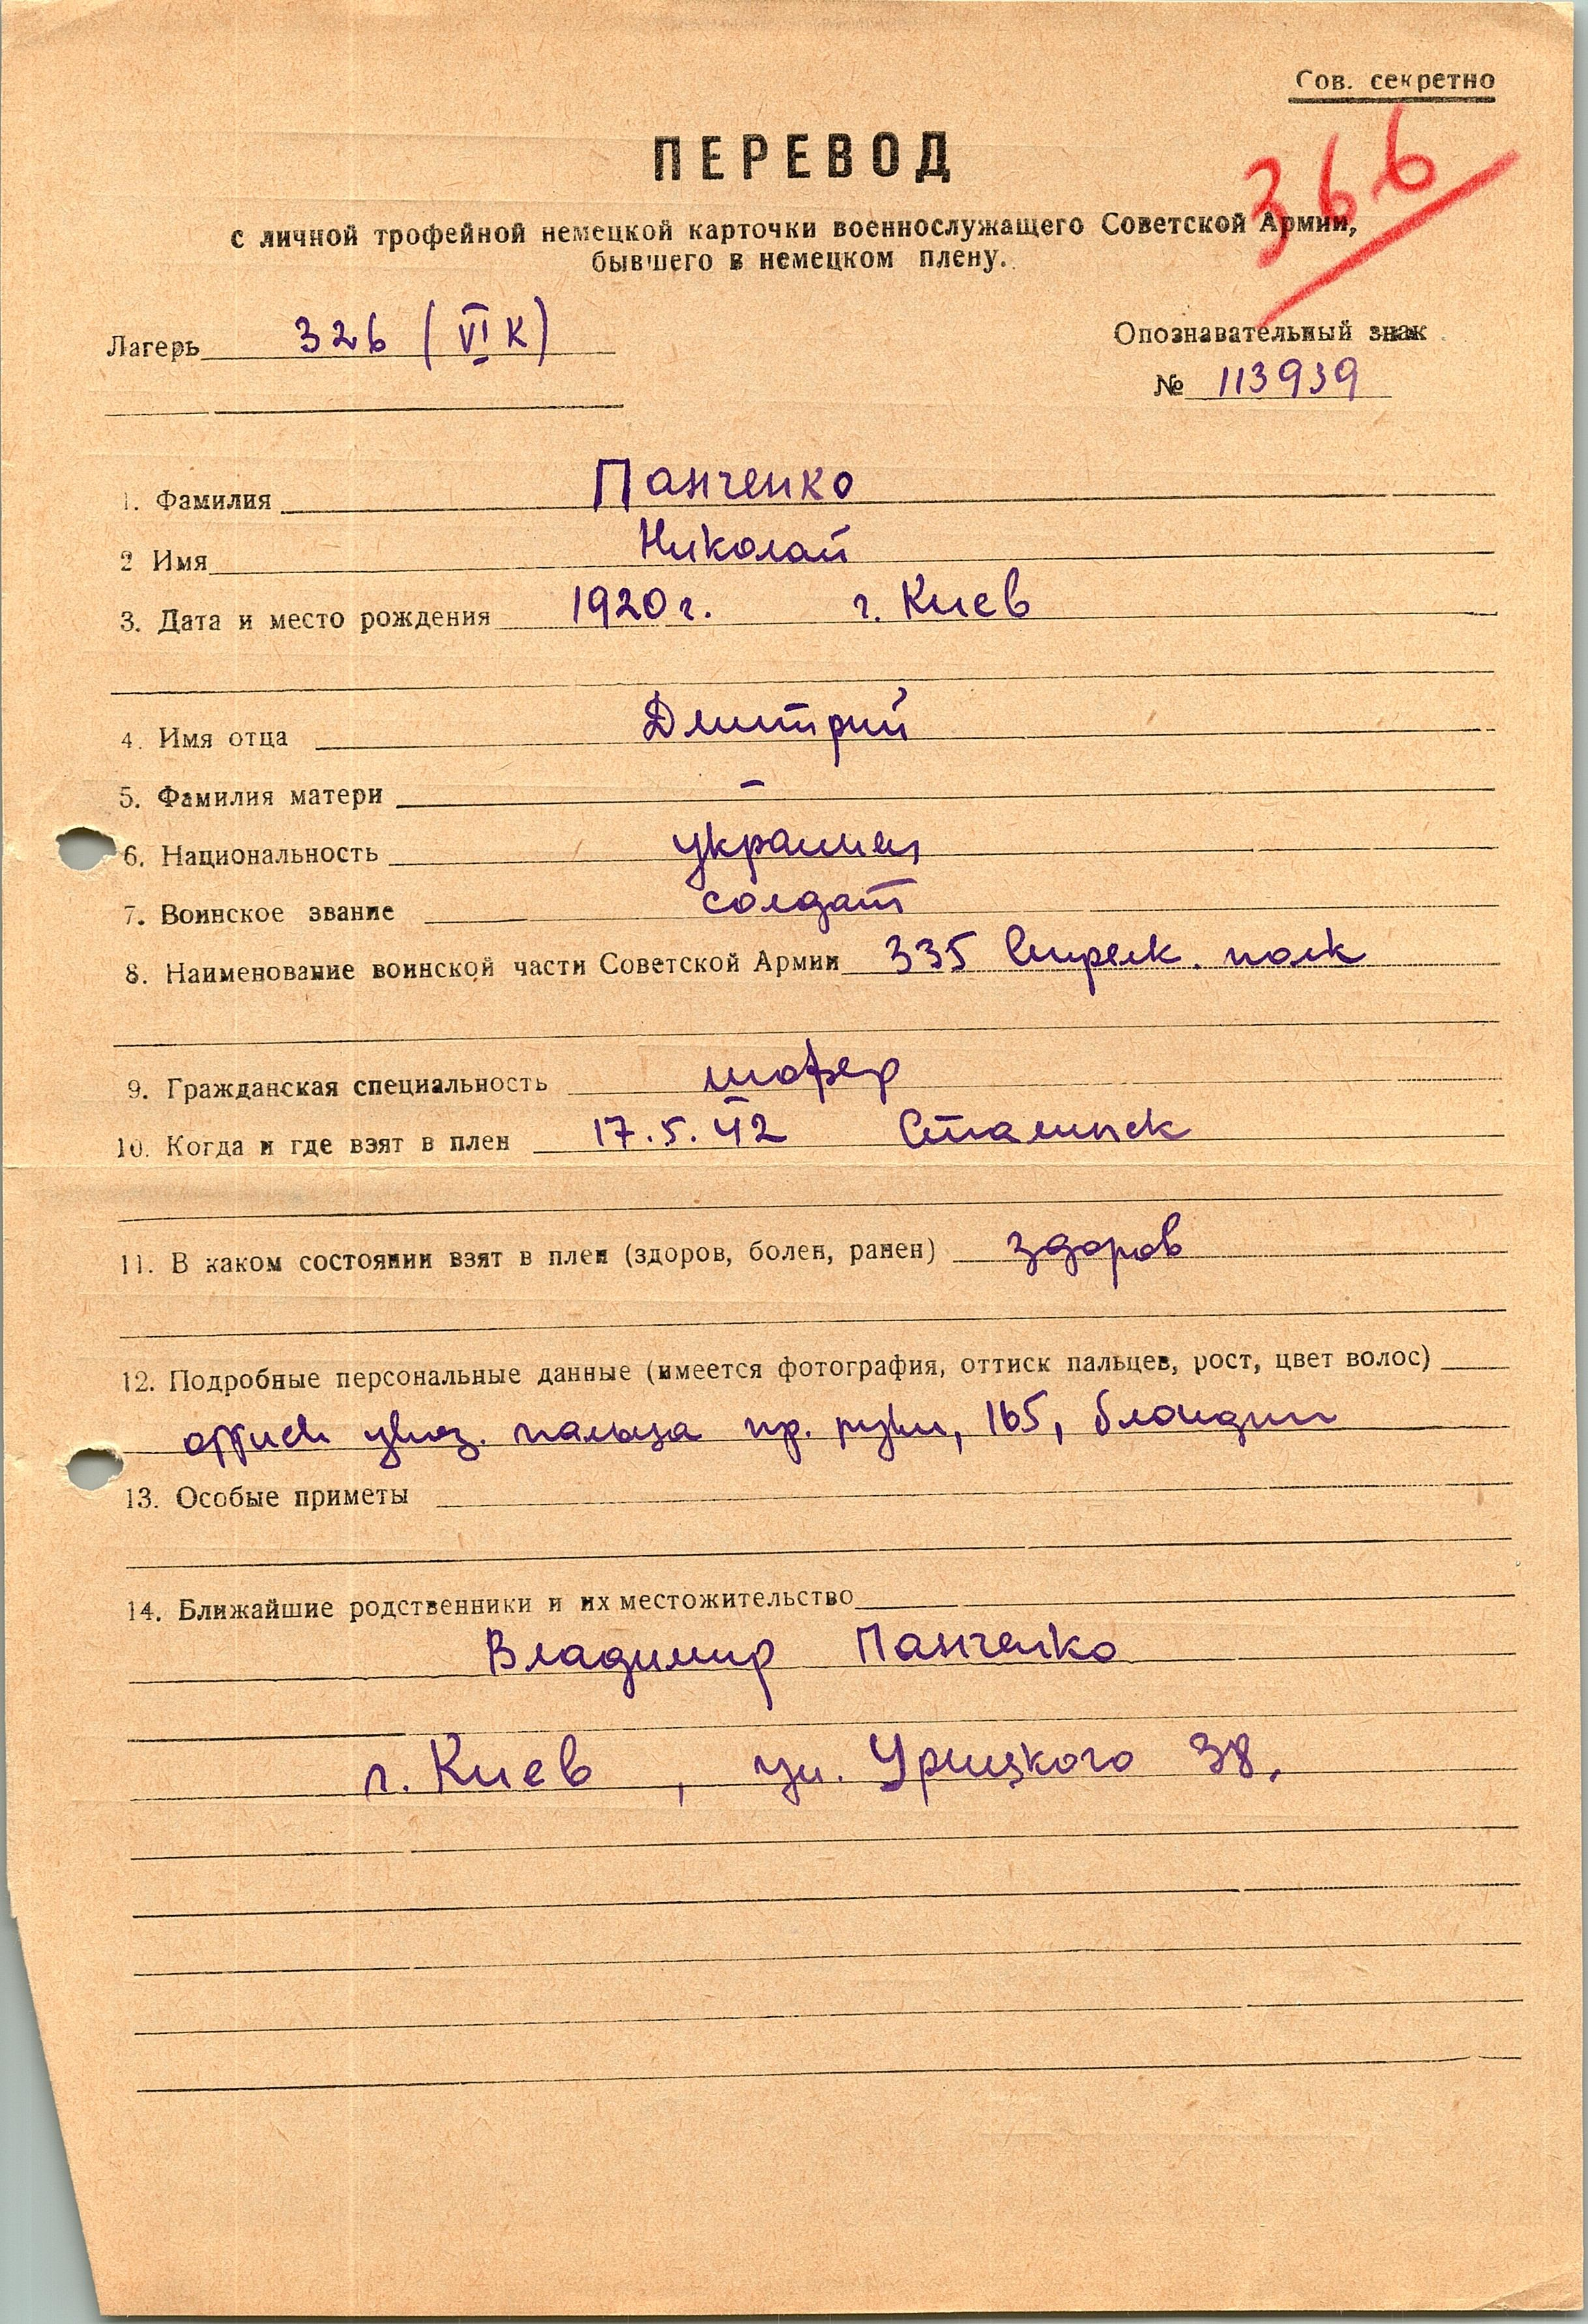 Сов. секретно
ПЕРЕВОД
366
с личной трофейной немецкой карточки военнослужащего Советской Армии,
бывшего в немецком плену.
Лагерь 326 (VI К)
Опознавательный знак
№ 113939
1. Фамилия Панченко
2 Имя Николай
3. Дата и место рождения 1920 г. г. Киев
4. Имя отца Дмитрий
5. Фамилия матери –
6. Национальность украинец
7. Воинское звание солдат
8. Наименование воинской части Советской Армии 335 Стрелк. полк
9. Гражданская специальность шофер
10. Когда и где взят в плен 17.5.42
11. В каком состоянии взят в плен (здоров, болен, ранен) здоров
12. Подробные персональные данные (имеется фотография, оттиск пальцев, рост, цвет волос)
оттиск указ. пальца пр. руки, 165, блондин
13. Особые приметы
14. Ближайшие родственники и их местожительство
Владимир Панченко
г. Киев, ул. Урицкого 38.